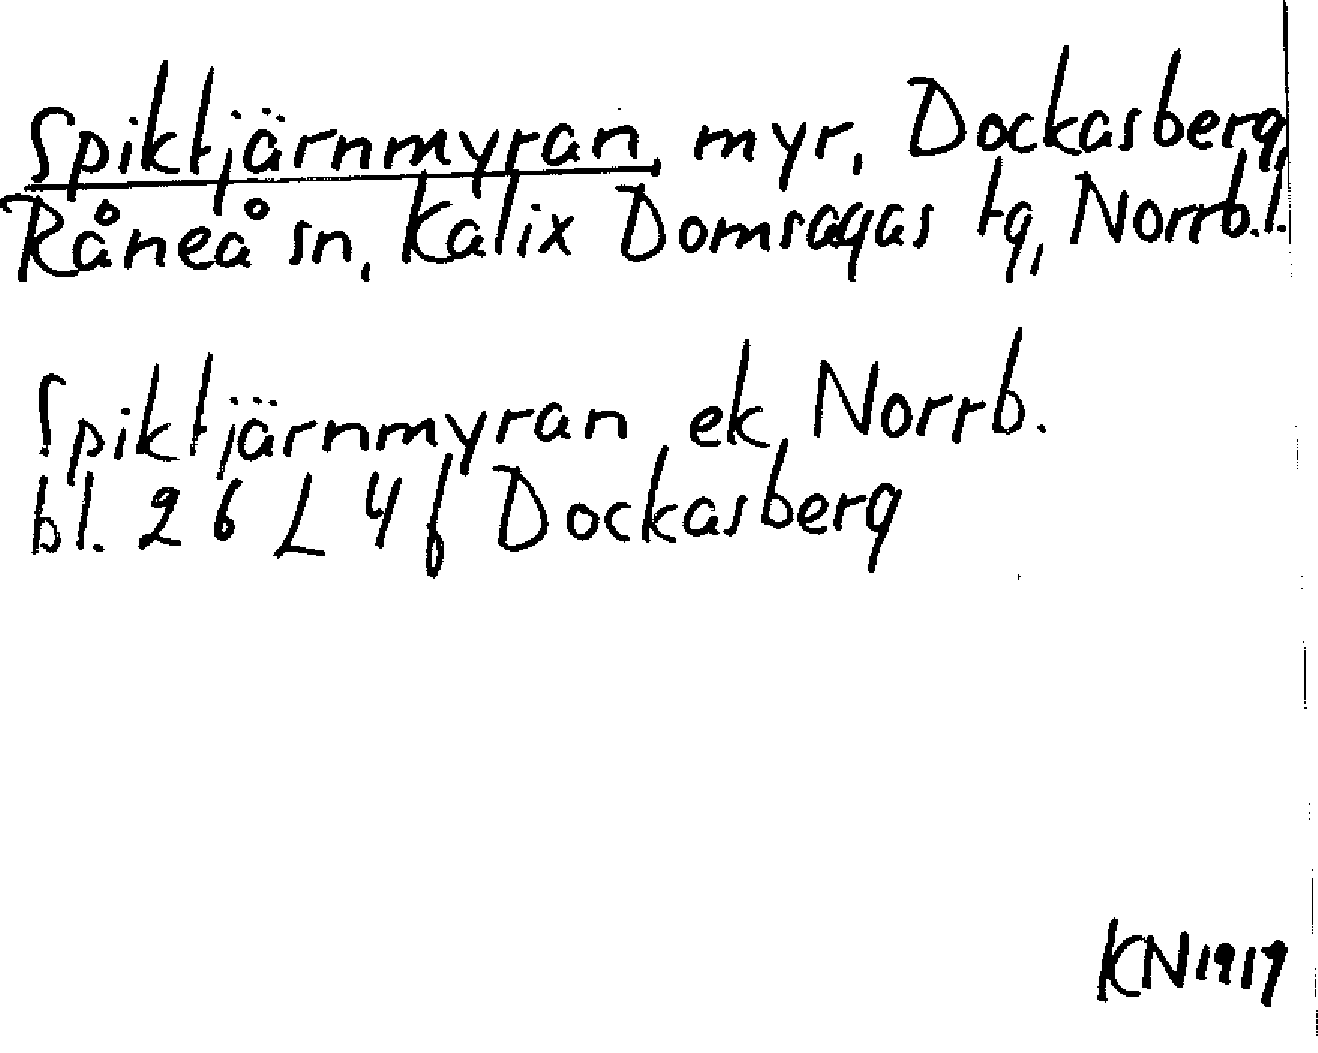 Spiktjärnmyran, myr, Dockasberg,
Råneå sn, Kalix Domsagas tg, Norrb.l.
Spiktjärnmyran ek, Norrb.
bl. 26 L 4 f Dockasberg
KN1919